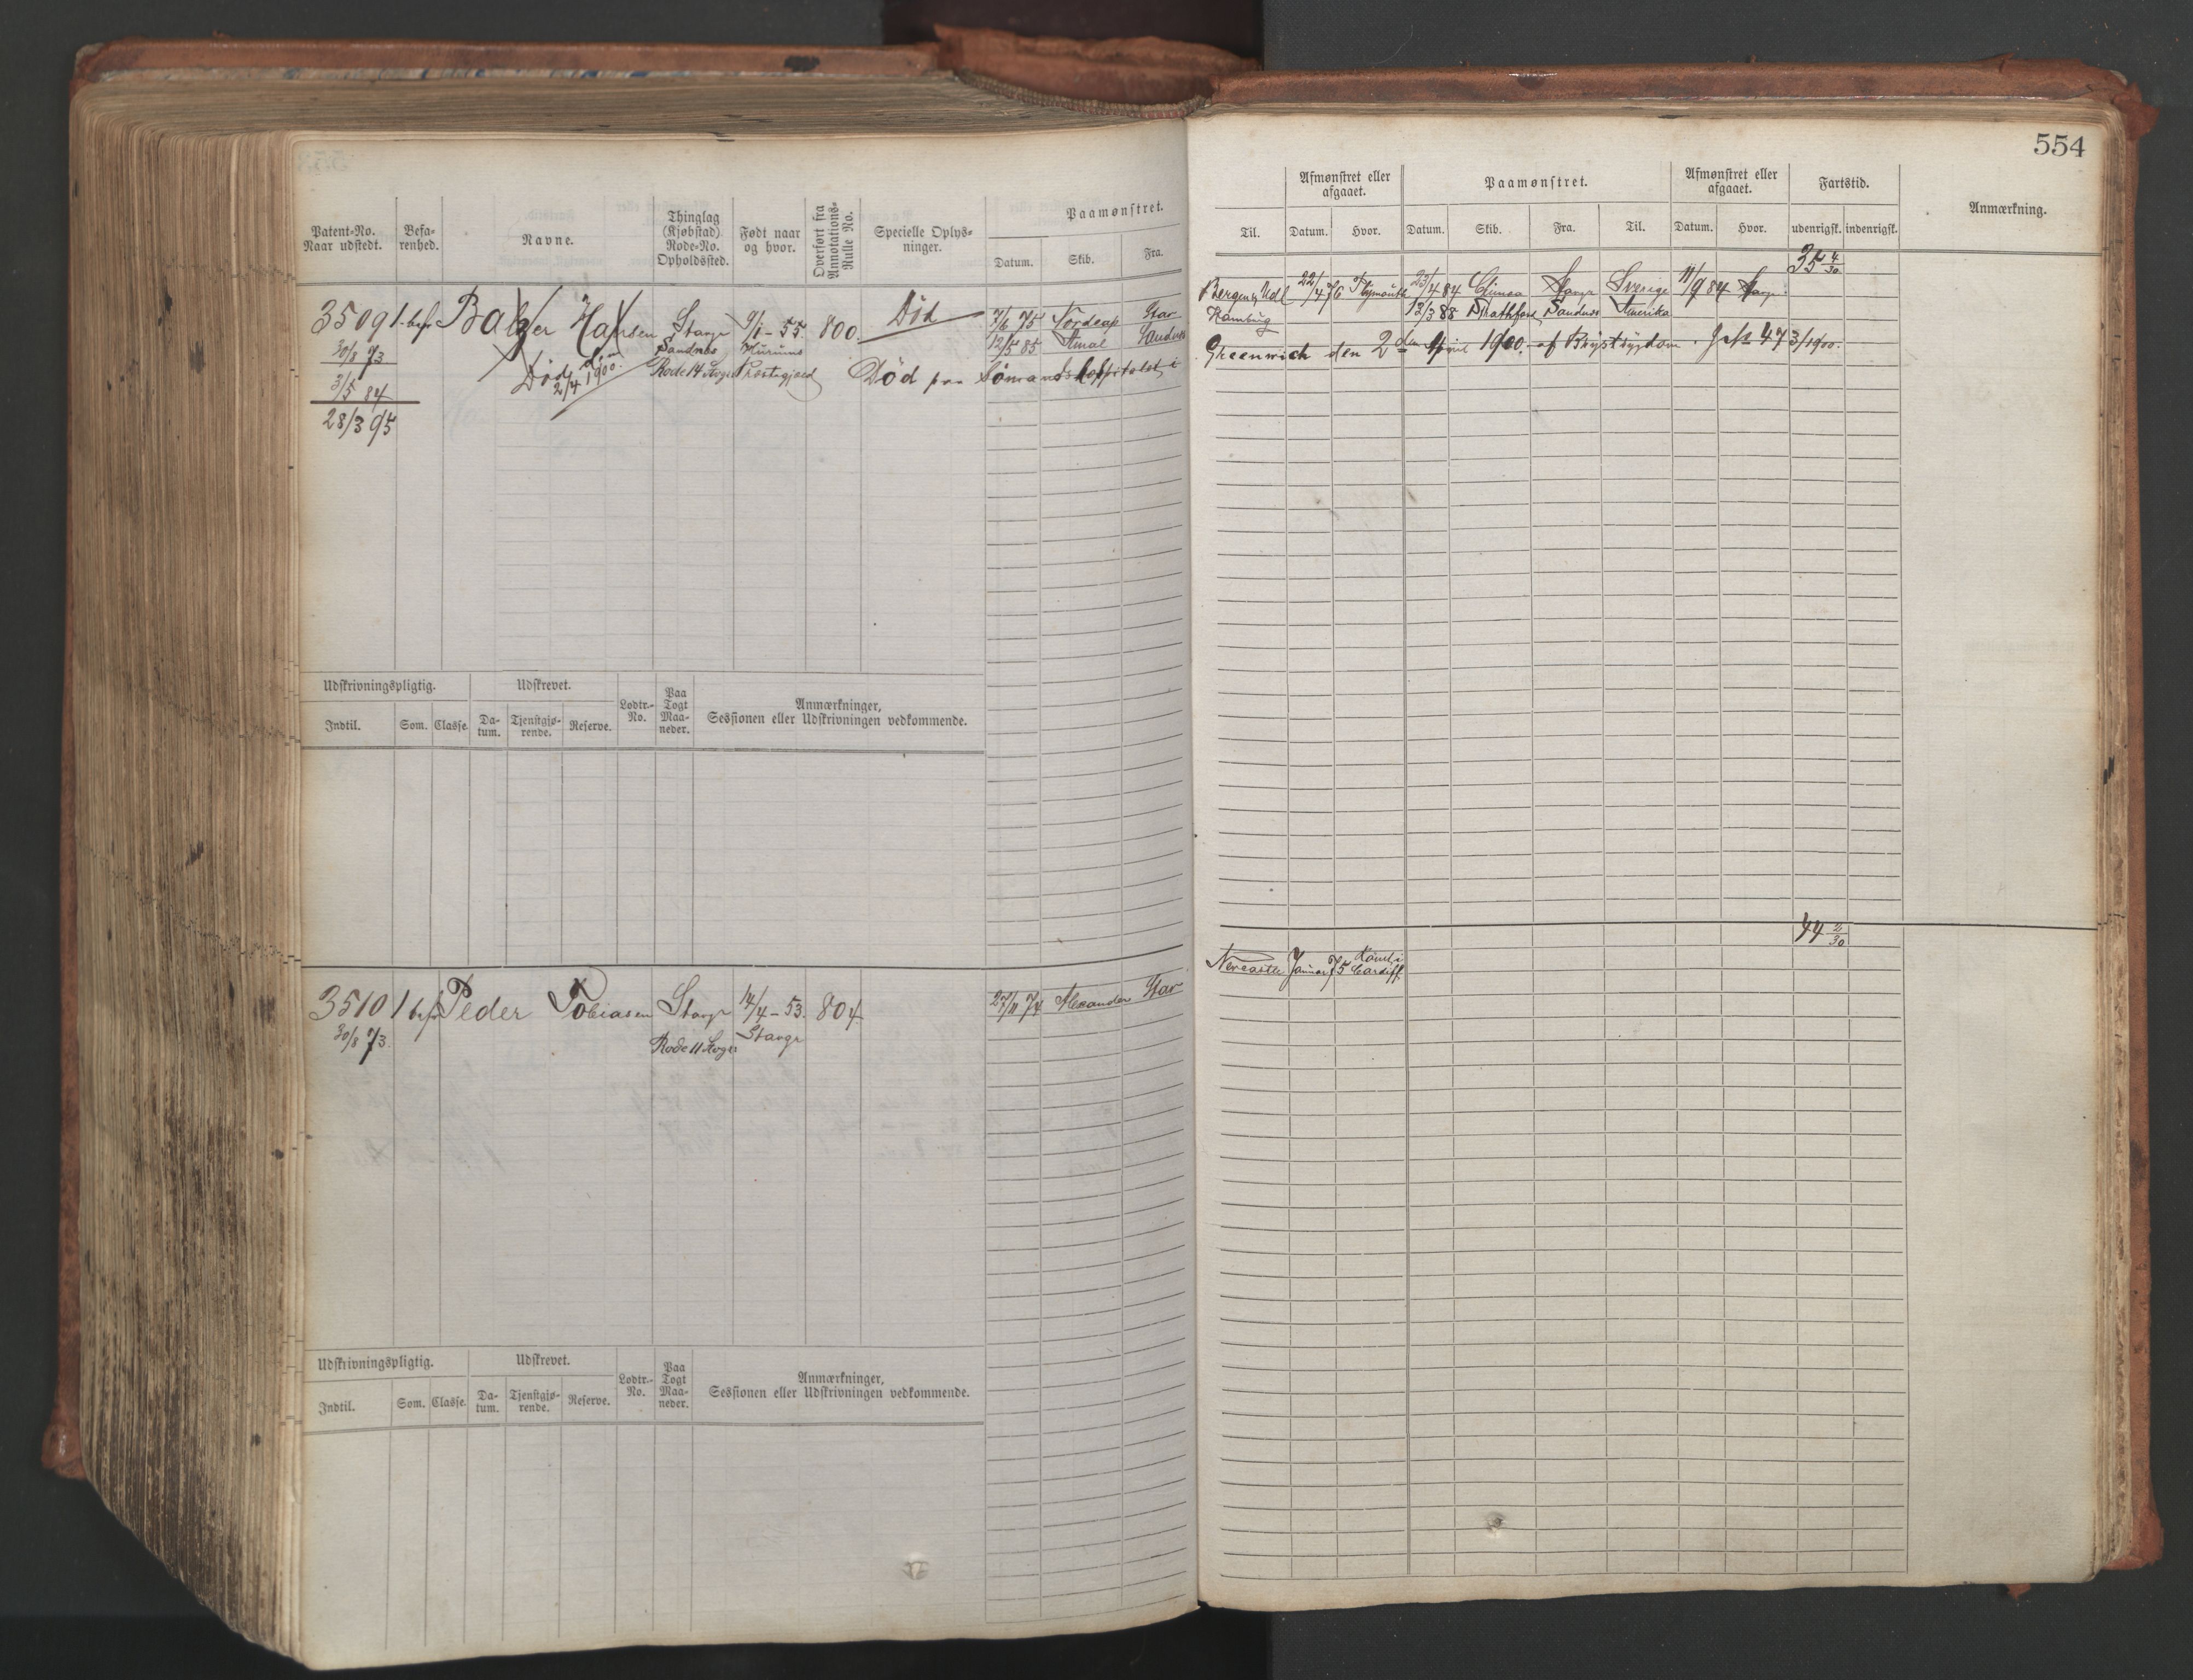 554
Patent-No. Naar udstedt.
Befa-renhed.
Navne.
Thinglag (Kjøbstad) Rode-No. Opholdssted.
Født naar og hvor.
Overført fra Annotations-Rulle No.
Specielle Oplys-ninger.
Paamønstret.
Datum. Skib. Fra.
Afmønstret eller afgaaet.
Paamønstret.
Afmønstret eller afgaaet.
Fartstid.
Anmærkning.
Til. Datum. Hvor. Datum. Skib. Fra. Til. Datum. Hvor. udenrigsk. indenrigsk.
35 4/30
3509 1. bef. Balzer Hansen Stavgr 9/1 - 55. 800. Død 7/6 75 Nordcap Stav
Bergen & Udl 22/4 76 Plymouth 23/4 84 Stavgr Sverige 11/9 84 Stavgr
30/8 73 Sandnes Hurums 12/5 85 Amal Sandnes
Hamburg 12/3 88 Strathford Sandnes Amerika
Død 2/4 1900. Rode 14 Stvgr Præstegjæld Død paa Sømandshospitalet i
Greenwich den 2den April 1900. af Brystsygdom. J. No 473/1900.
3/5 84
28/3 95
Udskrivningspligtig. Udskrevet. Lodtr.-No. Paa Togt Maa-neder. Anmærkninger, Sessionen eller Udskrivningen vedkommende.
Indtil. Som. Classe. Da-tum. Tjenstgjø-rende. Reserve.
44 2/30
3510 1 bef Peder Tobiasen Stavgr 14/4 - 53. 804. 27/11 74 Alexander Stav
Newcastle Januar 75 Rømt i Cardiff.
30/8 73. Rode 11 Stvgr Stavgr
Udskrivningspligtig. Udskrevet. Lodtr.-No. Paa Togt Maa-neder. Anmærkninger, Sessionen eller Udskrivningen vedkommende.
Indtil. Som. Classe. Da-tum. Tjenstgjø-rende. Reserve.